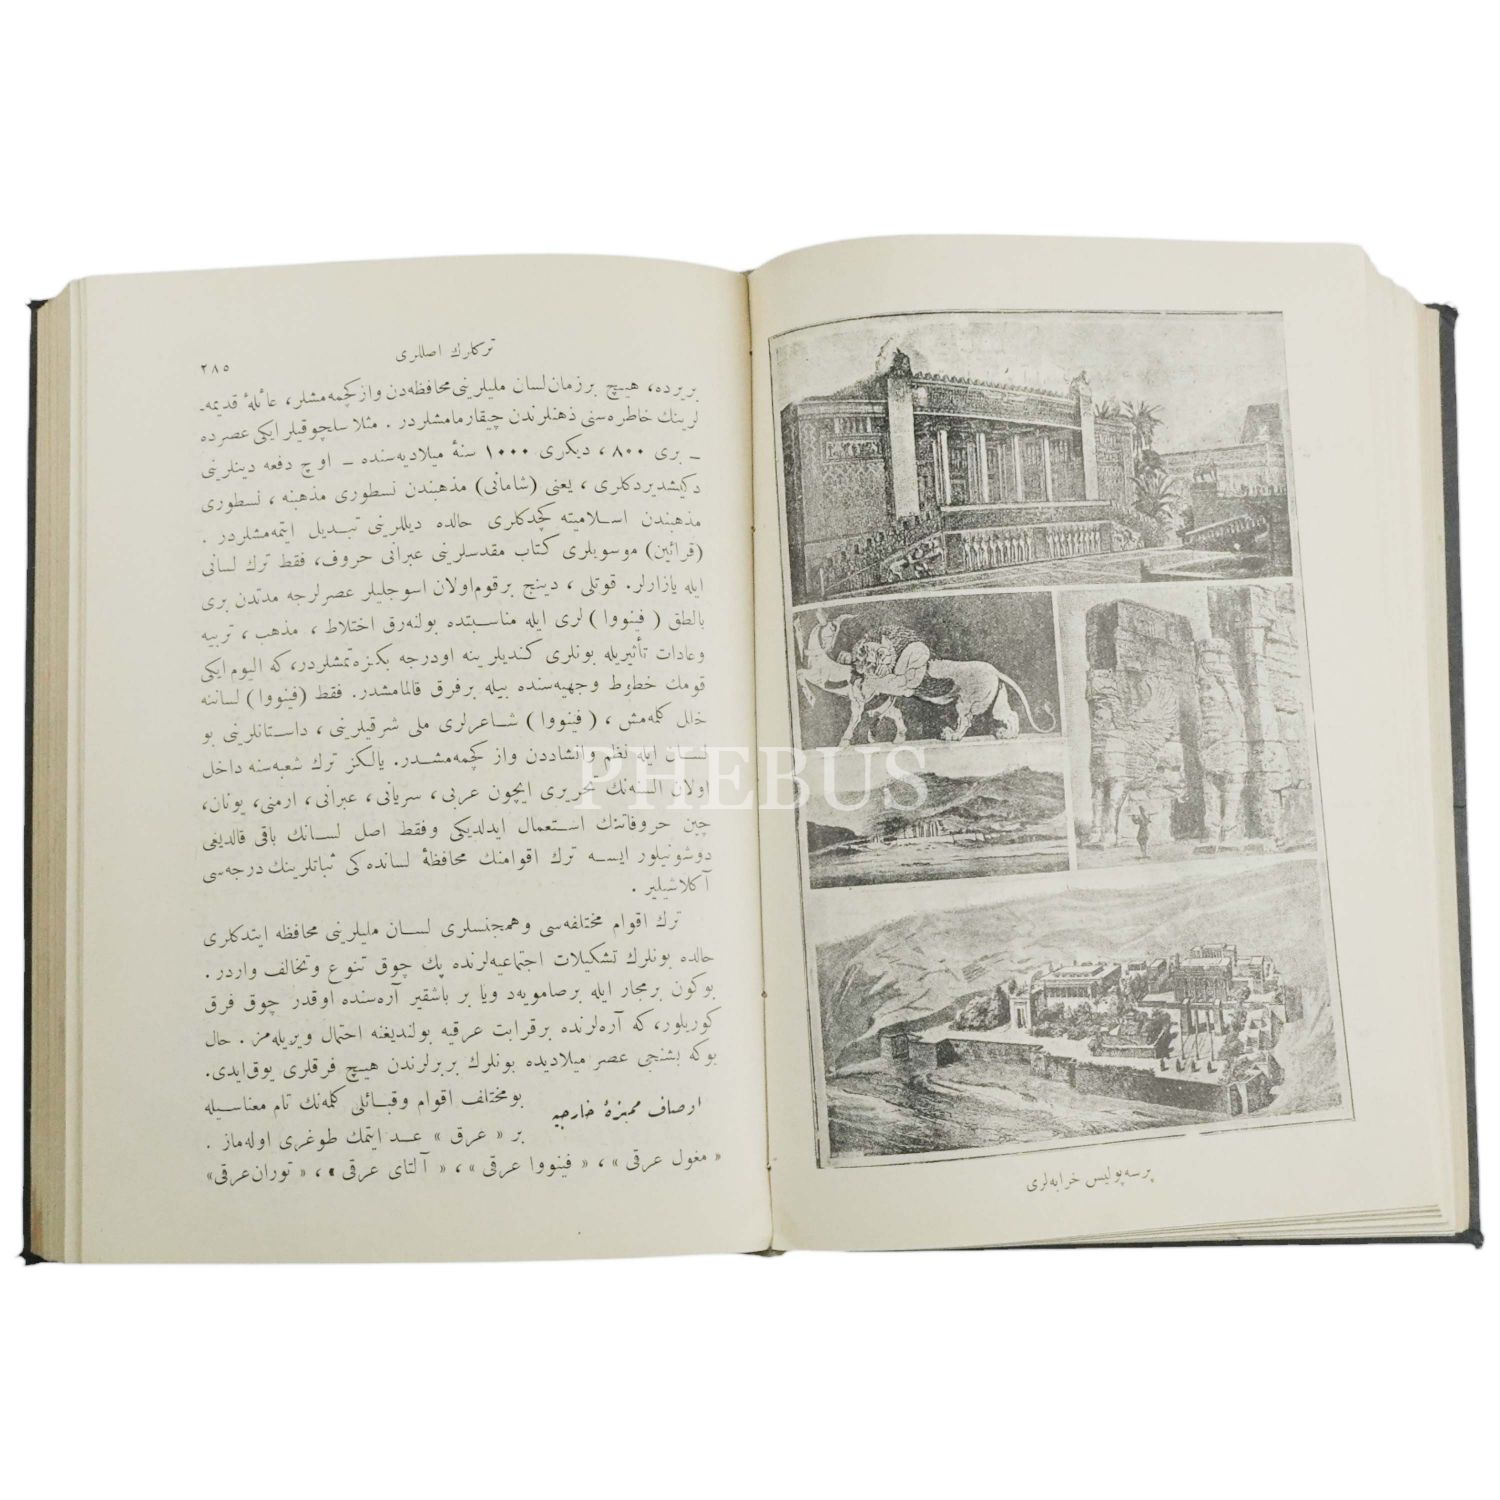 تركلرك اصللری
٢٨٥
بریرده، هیچ برزمان لسان ملیلرینی محافظه‌دن واز كچمه‌مشلر، عائلهٔ قدیمه‌ـ
لرینك خاطره‌سنی ذهنلرندن چیقارمامشلردر. مثلا سلچوقیلر ایكی عصرده
ـ بری ٨٠٠ ، دیكری ١٠٠٠ سنهٔ میلادیه‌سنده ـ اوچ دفعه دینلرینی
دكیشدیردكلری ، یعنی (شامانی) مذهبندن نسطوری مذهبنه ، نسطوری
مذهبندن اسلامیته كچدكلری حالده دیللرینی تبدیل ایتمه‌مشلردر .
(قرائین) موسویلری كتاب مقدسلرینی عبرانی حروف، فقط ترك لسانی
ایله یازارلر. قوتلی ، دینج برقوم اولان اسوجلیلر عصرلرجه مدتدن بری
بالطق ( فینووا ) لری ایله مناسبتده بولنه‌رق اختلاط ، مذهب ، تربیه
وعادات تأثیریله بونلری كندیلرینه اودرجه بكزه‌تمشلردر، كه الیوم ایكی
قومك خطوط وجهیه‌سنده بیله برفرق قالمامشدر. فقط (فینووا) لساننه
خلل كلمه‌مش ، ( فینووا ) شاعرلری ملی شرقیلرینی ، داستانلرینی بو
لسان ایله نظم وانشاددن واز كچمه‌مشدر. یالكز ترك شعبه‌سنه داخل
اولان السنه‌نك تحریری ایچون عربی ، سریانی، عبرانی ، ارمنی ، یونان،
چین حروفاتنك استعمال ایدلدیكی وفقط اصل لسانك باقی قالدیغی
دوشونیلور ایسه ترك اقوامنك محافظهٔ لسانده‌كی ثباتلرینك درجه‌سی
آكلاشیلیر .
ترك اقوام مختلفه‌سی وهمجنسلری لسان ملیلرینی محافظه ایتدكلری
حالده بونلرك تشكیلات اجتماعیه‌لرنده پك چوق تنوع وتخالف واردر .
بوكون برمجار ایله برصامویه‌د ویا بر باشقیر آره‌سنده اوقدر چوق فرق
كوریلور، كه آره‌لرنده برقرابت عرقیه بولندیغنه احتمال ویریله‌مز. حال
بوكه بشنجی عصر میلادیده بونلرك بربرلرندن هیچ فرقلری یوق‌ایدی.
اوصاف ممیزهٔ خارجیه
بومختلف اقوام وقبائلی كلمه‌نك تام معناسیله
بر « عرق » عد ایتمك طوغری اوله‌ماز .
« مغول عرقی » ، « فینووا عرقی » ، « آلتای عرقی » ، « توران عرقی»
پرسه‌پولیس خرابه‌لری
PHEBUS